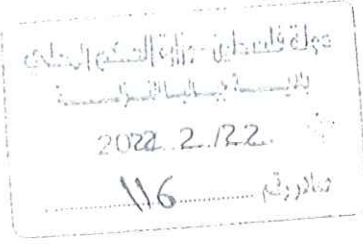 دولة فلسطين - وزارة الحكم المحلي
2022. 2./22.
صادر رقم ........ 116 ........